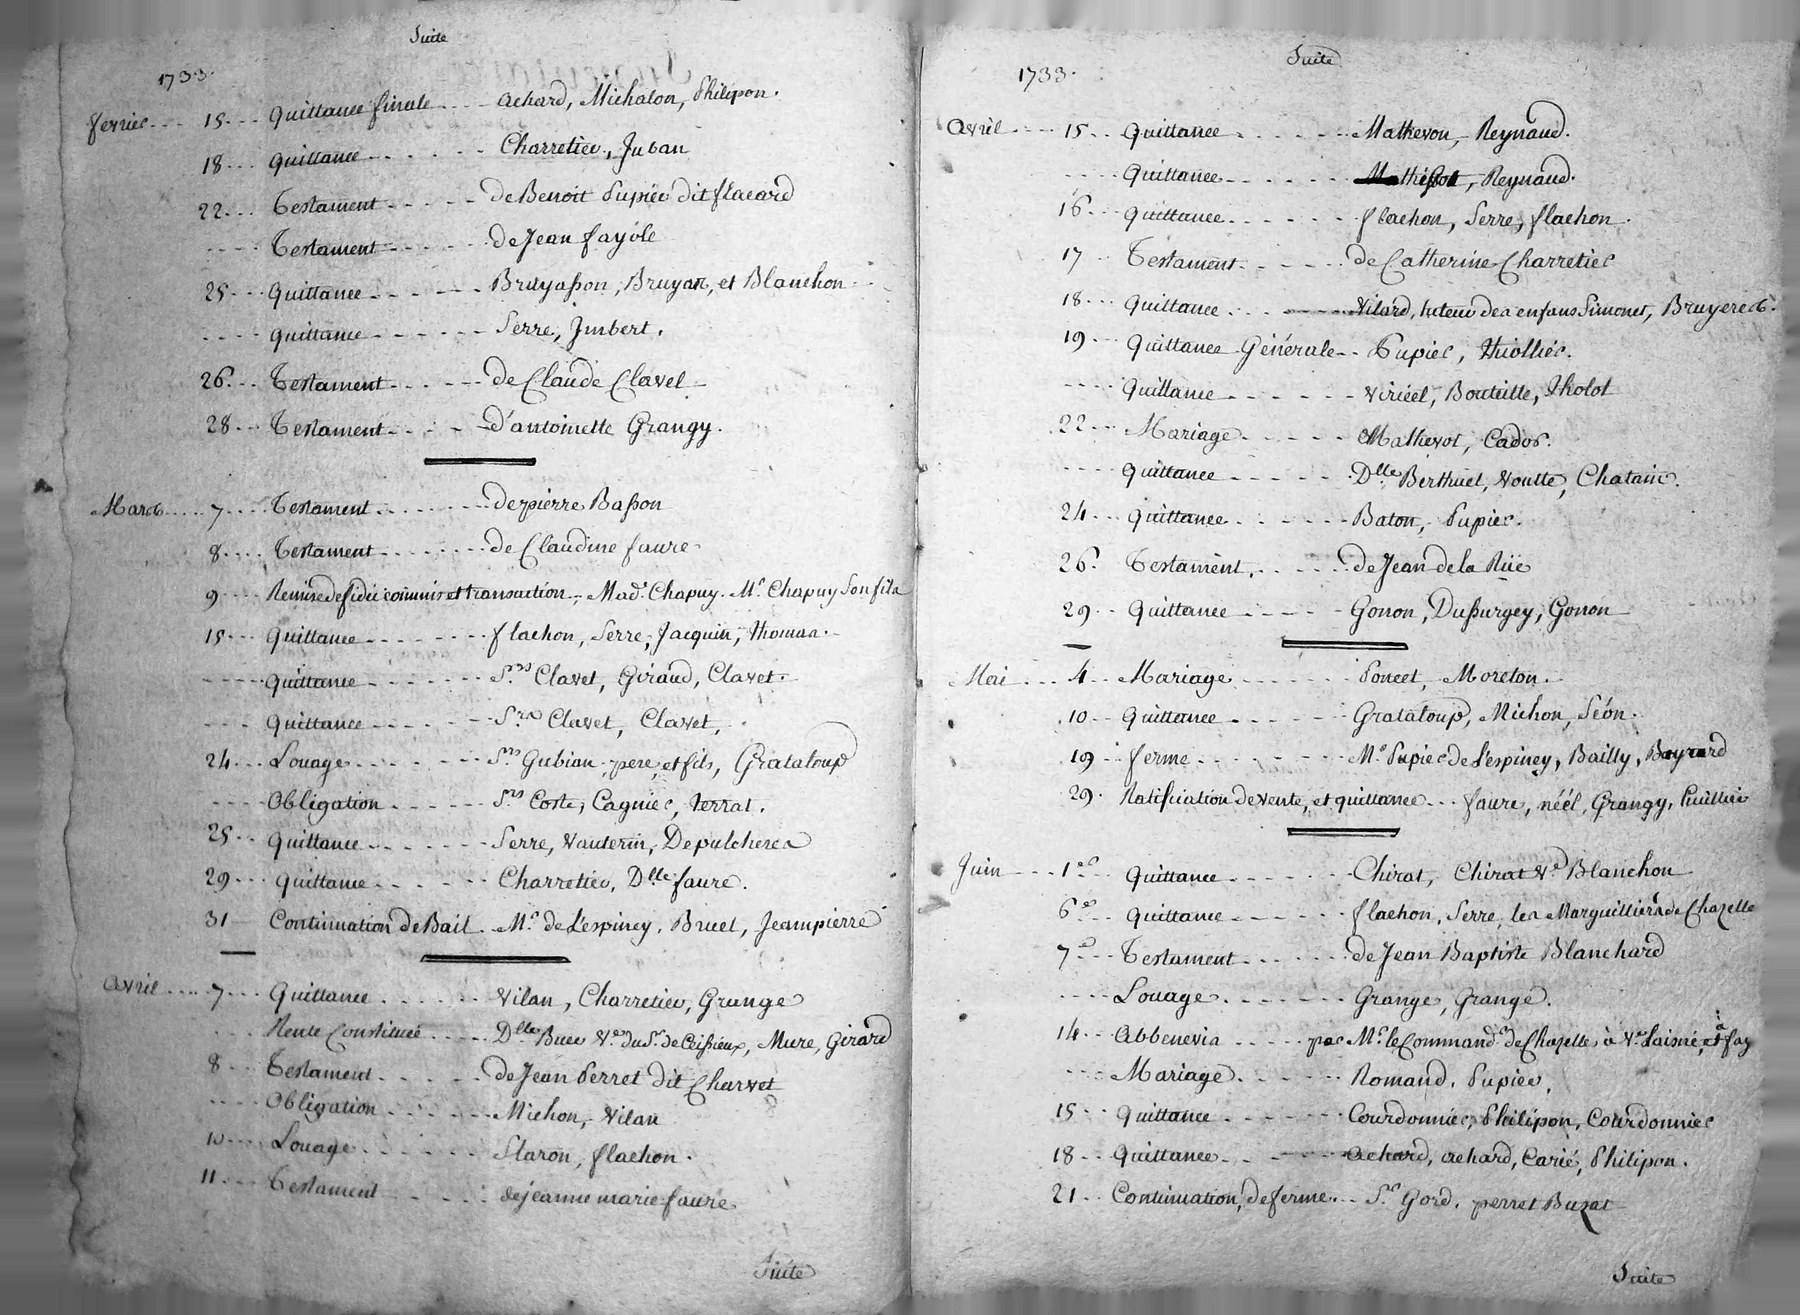 Suite
1733.
fevrier 15 quittance finale achard, Michalon, Philipon.
18 quittance Charretier, Juban
22 Testament de Benoit Pupier dit flacard
Testament de Jean fayole
25 quittance Bruyasson, Bruyan, et Blanchon
quittance Serre, Imbert.
26 Testament de Claude Clavel
28 Testament d'antoinette Grangy.
Mars 7 Testament de pierre Basson
8 Testament de Claudine faure
9 Remise de fidei commis et transaction Mad.e Chapuy. Mr. Chapuy Son fils
15 quittance flachon, Serre, Jacquin, Thomas.
quittance S.rs Clavet, Giraud, Clavet.
quittance S.rs Clavet, Clavet,
24 Louage S.rs Gubian pere, et fils, Grataloup
Obligation S.rs Coste, Cagnier, terrat.
25 quittance Serre, Vauterin, Depulchere
29 quittance Charretier, Dlle faure.
31 Continuation de Bail. Mr. de Lespiney, Bruel, Jeampierre
avril 7 Quittance Vilan, Charretier, Grange
Rente Constituée Dlle Buer Ve. du Sr. de Ceissieux, Mure, Girard
8 Testament de Jean Perret dit Charvet
Obligation Michon, Vilan
10 Louage Staron, flachon.
11 Testament de jeanne marie faure
Suite
Suite
1733.
avril 15 quittance Mathevon, Reynaud.
quittance Reynaud.
16 quittance flachon, Serre, flachon.
17 Testament de Catherine Charretier
18 quittance Vilard, tuteur des enfans Simonet, Bruyeres.
19 quittance Générale Pupier, Thiollier.
quittance Viriéel, Bouteille, Tholot
22 Mariage Mathevot, Cador.
quittance Dlle Berthuel, Voutte, Chatain.
24 quittance Baton, Pupier.
26. Testament de Jean de la Rüe
29 Quittance Gonon, Dussurgey, Gonon
Mai 4 Mariage Poncet, Moreton.
10 quittance Grataloup, Michon, Séon.
19 ferme Mr. Pupier de Lespiney, Bailly, Bayrard
29. Ratification de vente, et quittance faure, néél, Grangy, Cuillier
Juin 1er quittance Chirat, Chirat Ve Blanchon
6e quittance flachon, Serre, les Marguilliers de Chazelle
7e Testament de Jean Baptiste Blanchard
Louage Grange, Grange.
14 abbenevis par Mr. le Command.r de Chazelle, à Ve Laisné, et à fay
Mariage Romand, Pupier.
15 quittance Courdonnier, Philipon, Courdonnier
18 quittance achard, achard, Carié, Philipon.
21 Continuation de ferme Sr. Gord. perret Buzat
Suite